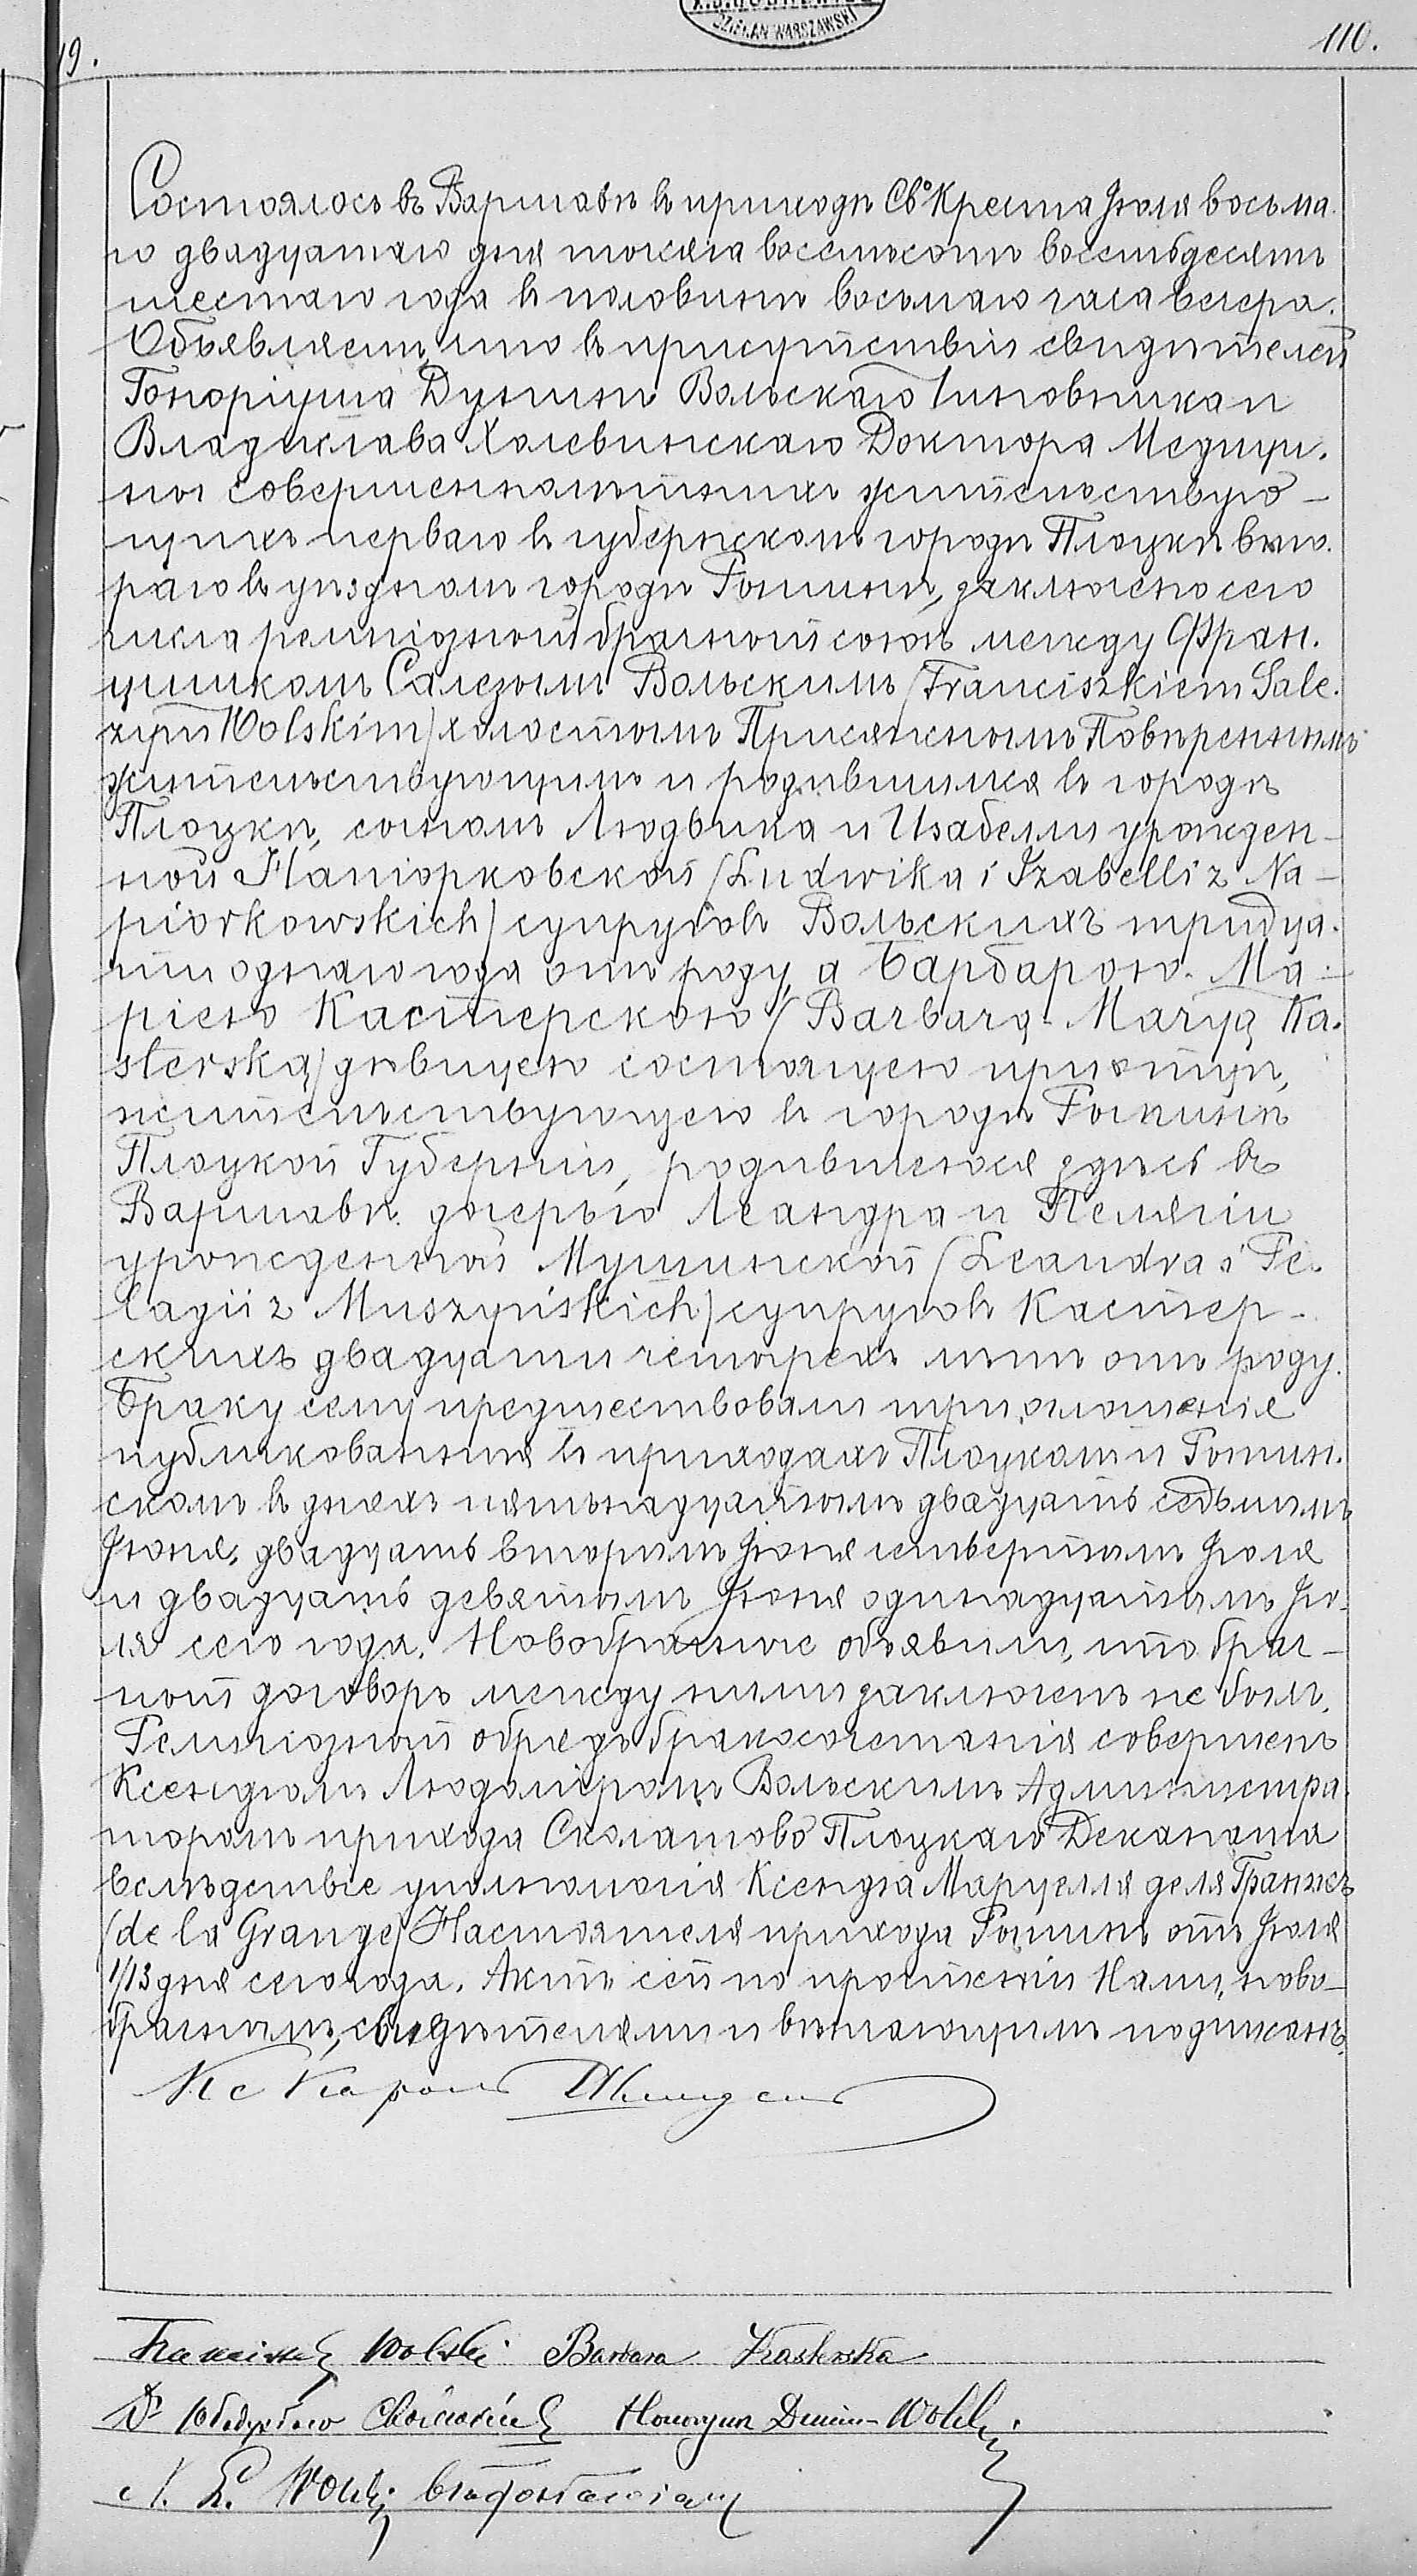 DZIEKAN WARSZAWSKI
19.
110.
Состоялось въ Варшавѣ въ приходѣ Свº Креста Іюля восьма-
го двадцатаго дня тысяча восемьсотъ восемьдесятъ
шестаго года въ половинѣ восьмаго часа вечера.
Объявляемъ, что въ присутствіи свидѣтелей
Гонорiуша Дунинъ Вольскаго Чиновника и
Владислава Холевинскаго Доктора Медици-
ны совершеннолѣтнихъ жительствую-
щихъ перваго въ губернскомъ городѣ Плоцкѣ вто-
раго въ уѣздномъ городѣ Рыпинѣ, заключено сего
числа религіозный брачный союзъ между Фран-
цишкомъ Салезымъ Вольскимъ /Franciszkiem Sale-
zym Wolskim/ холостымъ Присяжнымъ Повѣреннымъ
жительствующимъ и родившимся въ городѣ
Плоцкѣ, сыномъ Людвика и Изабеллы урожден-
ной Напіорковской /Ludwika i Izabelli z Na-
piórkowskich/ супруговъ Вольскихъ тридца-
ти однаго года отъ роду, а Барбарою-Ма-
ріею Кастерскою /Barbarą-Maryą Ka-
sterską/ дѣвицею состоящею при отцѣ,
жительствующею въ городѣ Рыпинѣ
Плоцкой Губерніи, родившеюся здѣсь въ
Варшавѣ дочерью Леандра и Пелягіи
урожденной Мушинской /Leandra i Pe-
lagii z Muszyńskich/ супруговъ Кастер-
скихъ двадцати четырехъ лѣтъ отъ роду.
Браку сему предшествовали три оглашенія
публикованныя въ приходахъ Плоцкомъ и Рыпин-
скомъ въ дняхъ пятьнадцатомъ двадцать седьмымъ
Іюня, двадцать вторымъ Іюня четвертымъ Іюля
и двадцать девятомъ Іюня одинадцатымъ Ію-
ля сего года. Новобрачные объявили, что брач-
ный договоръ между ними заключенъ не былъ.
Религіозный обрядъ бракосочетанія совершенъ
Ксендзомъ Людомiромъ Вольскимъ Администра-
торомъ прихода Сколатово Плоцкаго Деканата
вслѣдствіе уполномочія Ксендза Марцелля деля Гранжъ
/de la Grange/ Настоятеля прихода Рыпинъ отъ Іюля
1/13 дня сего года. Актъ сей по прочтеніи Нами, ново-
брачнымъ, свидѣтелями и вѣнчающимъ подписанъ.
Кс Кароль
Franciszek Wolski Barbara Kasterska
Dr Honoryusz Dunin-Wolski
X. L. Wolski